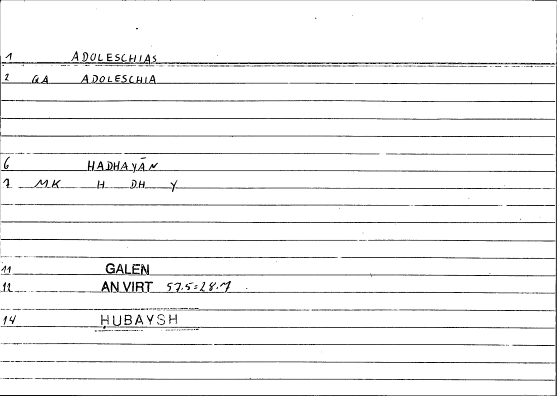 1 ADOLESCHIAS
2 GA ADOLESCHIA
6 HADHAYĀN
7 MK H DH Y
11 GALEN
12 AN VIRT 57.5=28.7
14 ḤUBAYSH